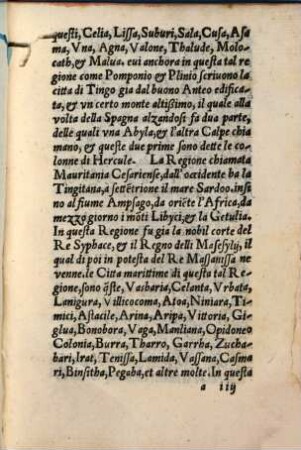 questi, Celia, Lissa, Suburi, Sala, Cusa, Asa-
ma, Vna, Agna, Valone, Thalude, Molo-
cath, & Malua. eui anchora in questa tal re
gione come Pomponio et Plinio scriuono la
citta di Tingo gia dal buono Anteo edifica-
ta, & vn certo monte altißimo, il quale alla
volta della Spagna alzandosi fa dua parte,
delle quali vna Abyla, et l'altra Calpe chia
mano, et queste due prime sono dette le co-
lonne di Hercule. La Regione chiamata
Mauritania Cesariense, dall'occidente ba la
Tingitana, a settẽtrione il mare Sardoo. insi
no al fiume Ampsago, da oriẽte l'Africa, da
mezzo giorno i mõti Libyci, et la Getulia.
In questa Regione fu gia la nobil corte del
Re Syphace, et il Regno delli Masesyly, il
qual di poi in potesta del Re Massanissa ne
venne. le Citta marittime di questa tal Re-
gione, sono q̃ste, Vasbaria, Celanta, Vrbata,
Lanigura, Villicocoma, Atoa, Niniara, Ti-
mici, Astacile, Arina, Aripa, Vittoria, Gi-
glua, Bonobora, Vaga, Manliana, Opidoneo
Colonia, Burra, Tharro, Garrha, Zucha-
bari, Irat, Tenissa, Lamida, Vassana, Casma
ri, Binsitha, Pegaba, et altre molte. In questa
a iij